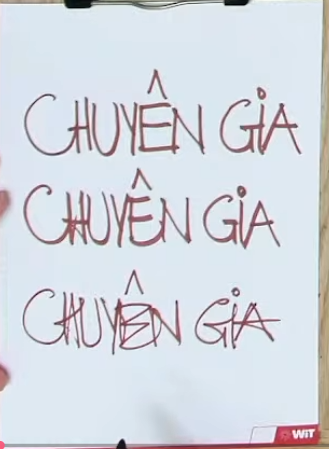 CHUYÊN GiA
CHUYÊN GiA
CHUYÊN GiA
WiT